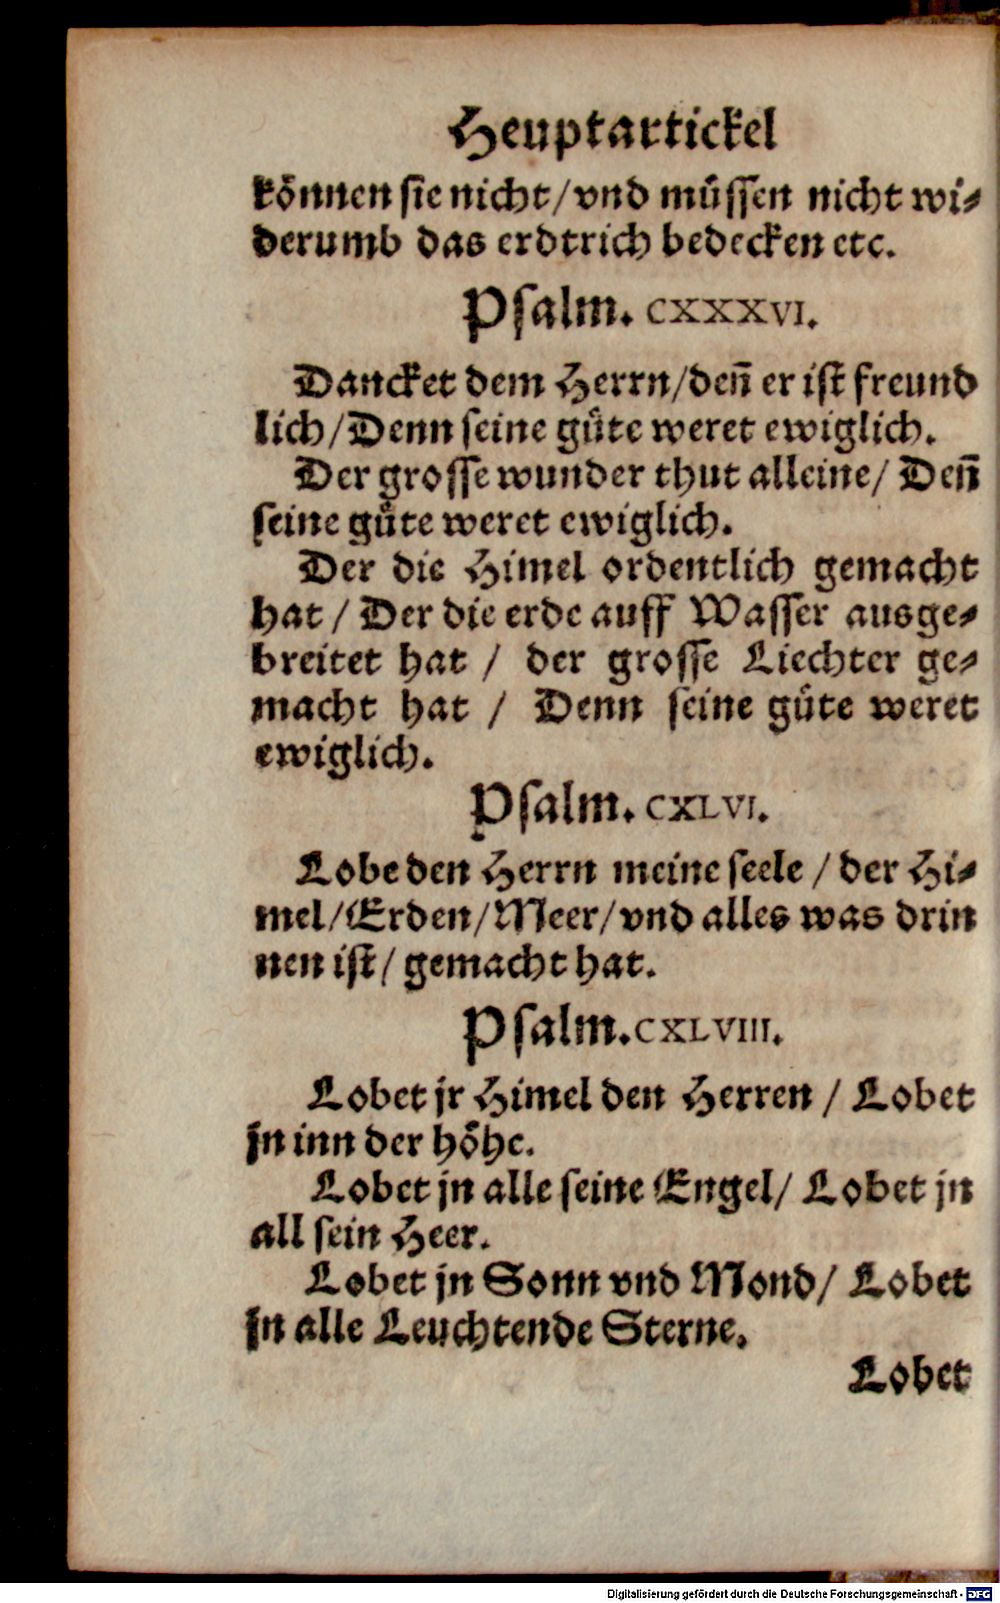 Heuptartickel
können sie nicht/vnd müssen nicht wi-
derumb das erdtrich bedecken etc.
Psalm. CXXXVI.
Dancket dem Herrn/den̄ er ist freund
lich/Denn seine güte weret ewiglich.
Der grosse wunder thut alleine/ Den̄
seine güte weret ewiglich.
Der die Himel ordentlich gemacht
hat / Der die erde auff Wasser ausge-
breitet hat / der grosse Liechter ge-
macht hat / Denn seine güte weret
ewiglich.
Psalm. CXLVI.
Lobe den Herrn meine seele / der Hi-
mel/Erden/Meer/vnd alles was drin
nen ist/ gemacht hat.
Psalm.CXLVIII.
Lobet jr Himel den Herren / Lobet
jn inn der höhe.
Lobet jn alle seine Engel/ Lobet jn
all sein Heer.
Lobet jn Sonn vnd Mond/ Lobet
jn alle Leuchtende Sterne.
Lobet
Digitalisierung gefördert durch die Deutsche Forschungsgemeinschaft - DFG